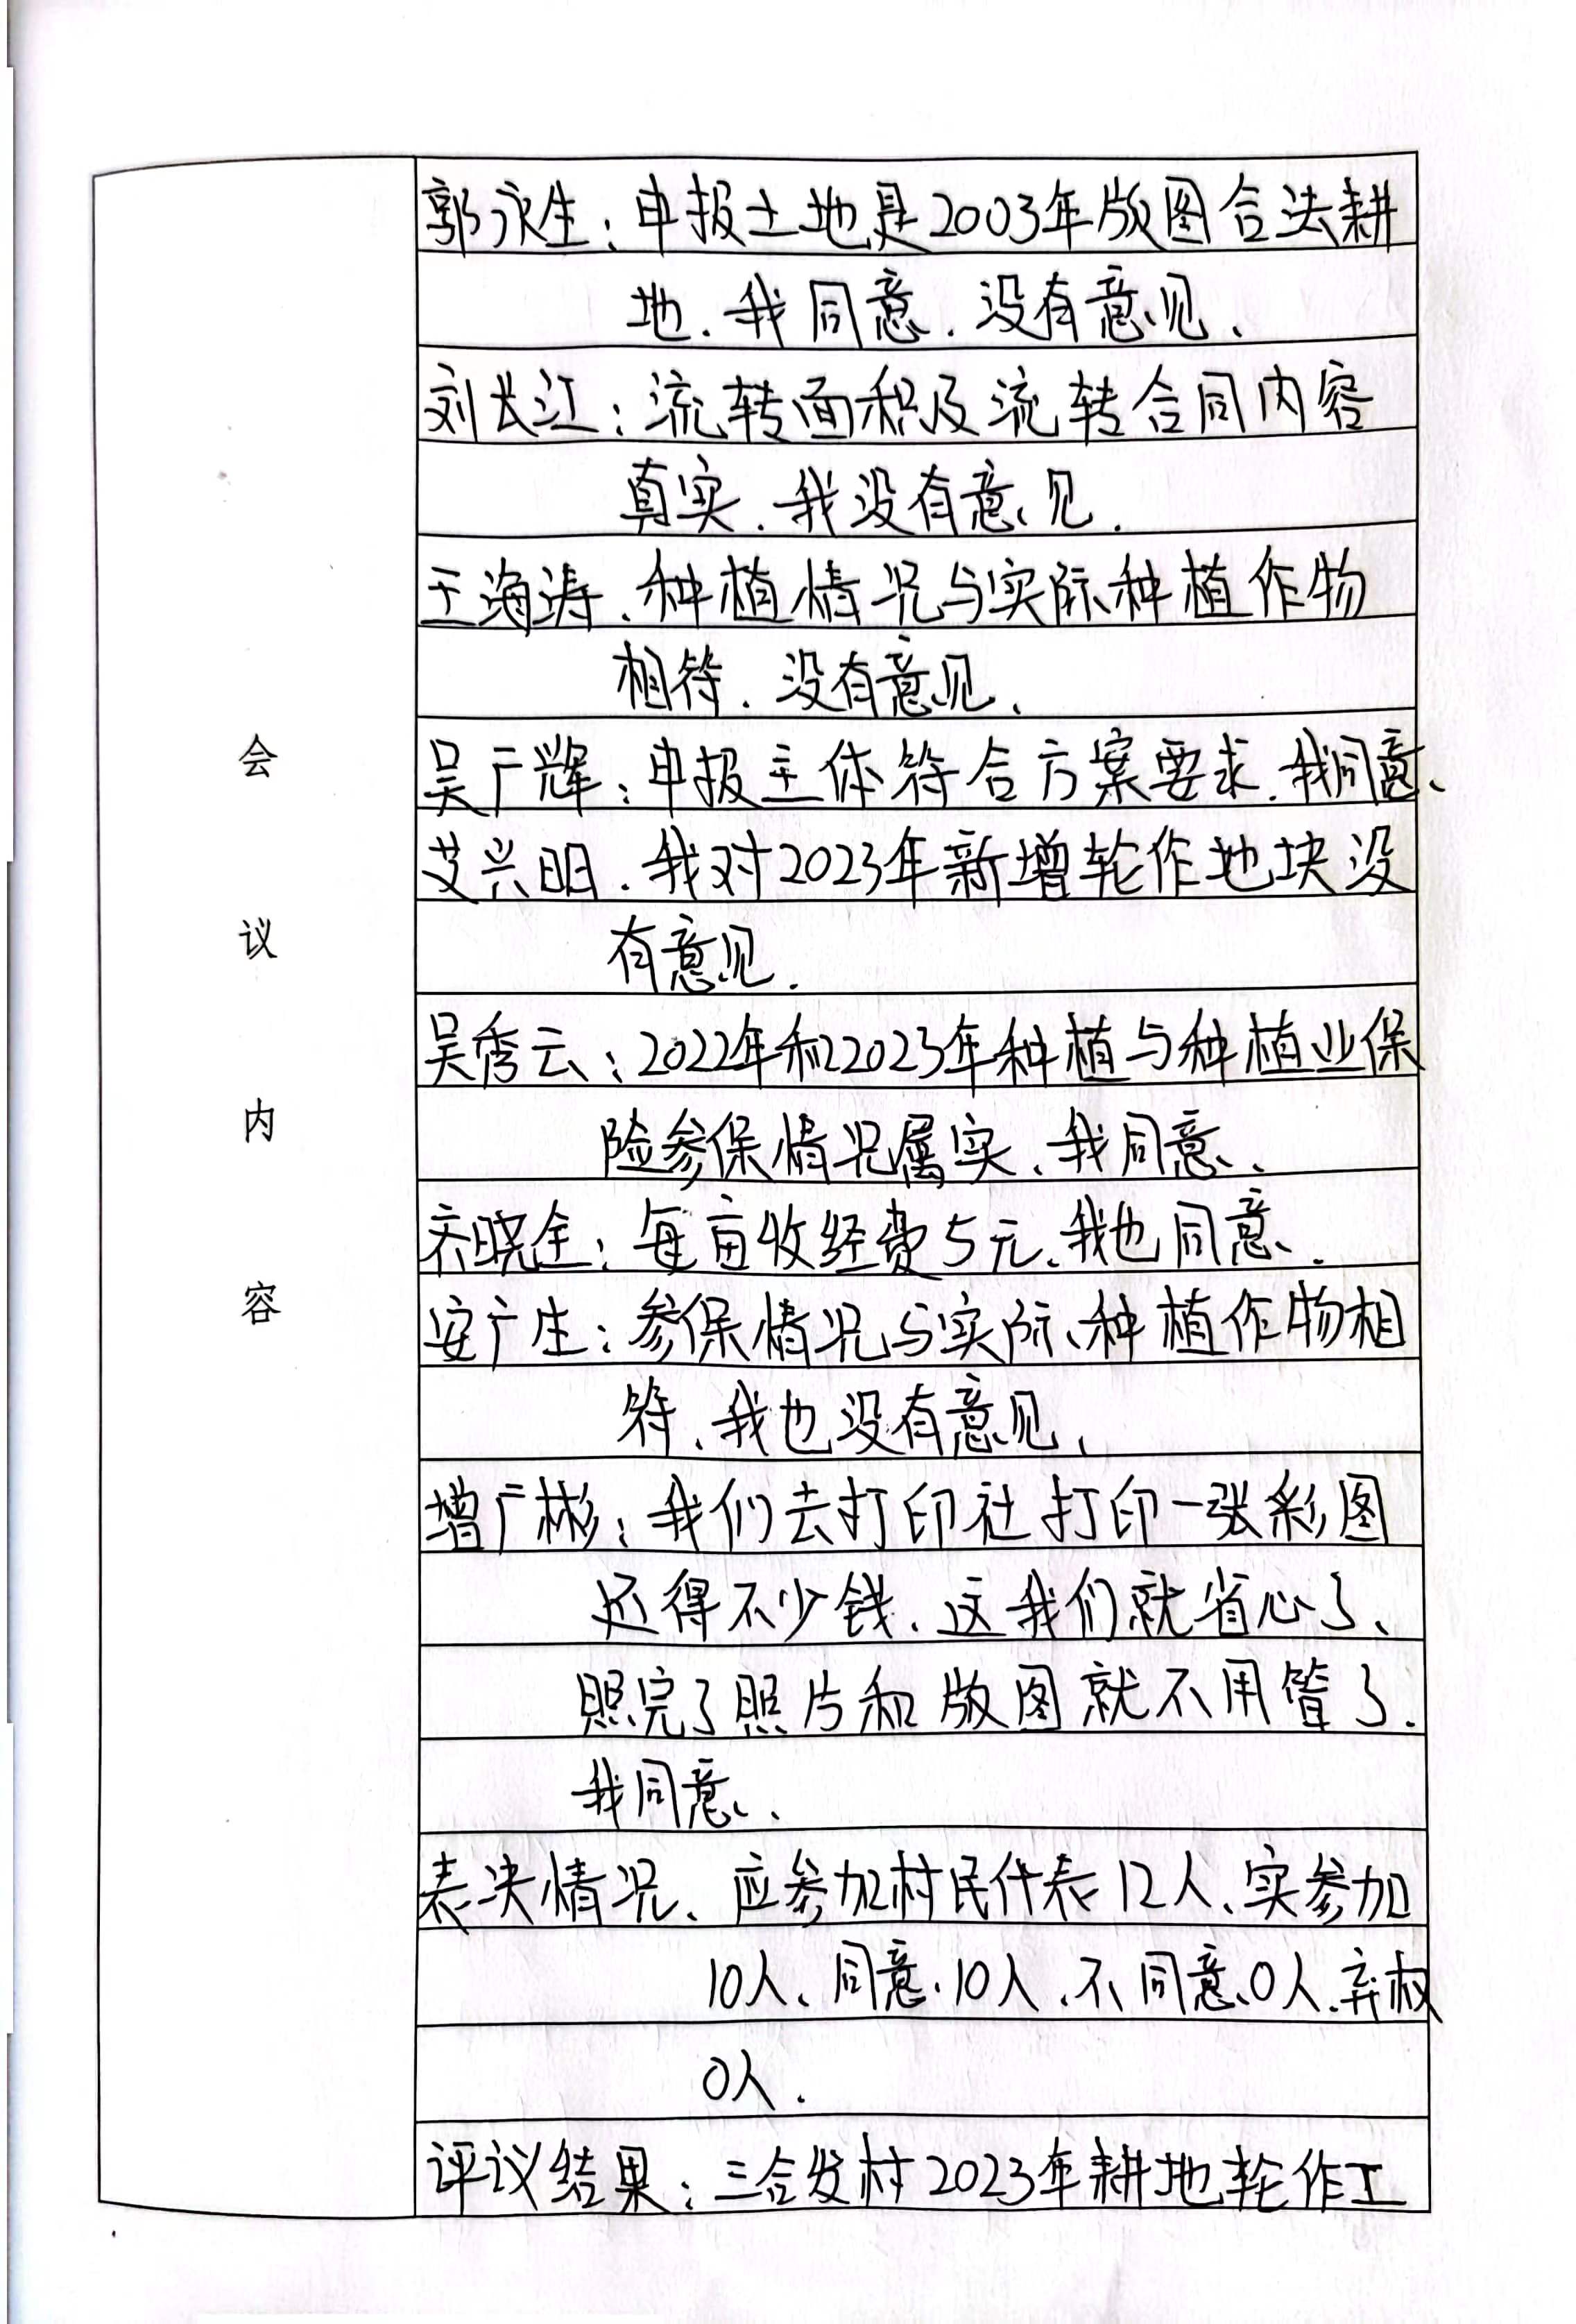 会议内容
郭永生：申报土地是2003年版图合法耕
地．我同意．没有意见．
刘长江：流转面积及流转合同内容
真实．我没有意见．
王海涛．种植情况与实际种植作物
相符．没有意见．
吴广辉：申报主体符合方案要求．我同意．
艾兴明．我对2023年新增轮作地块没
有意见．
吴秀云：2022年和2023年种植与种植业保
险参保情况属实．我同意．
齐晓全：每亩收经费5元．我也同意．
安广生：参保情况与实际种植作物相
符．我也没有意见．
增广彬：我们去打印社打印一张彩图
还得不少钱．这我们就省心了．
照完了照片和版图就不用管了．
我同意．
表决情况．应参加村民代表12人．实参加
10人．同意．10人．不同意．0人．弃权
0人．
评议结果：三合发村2023年耕地轮作工